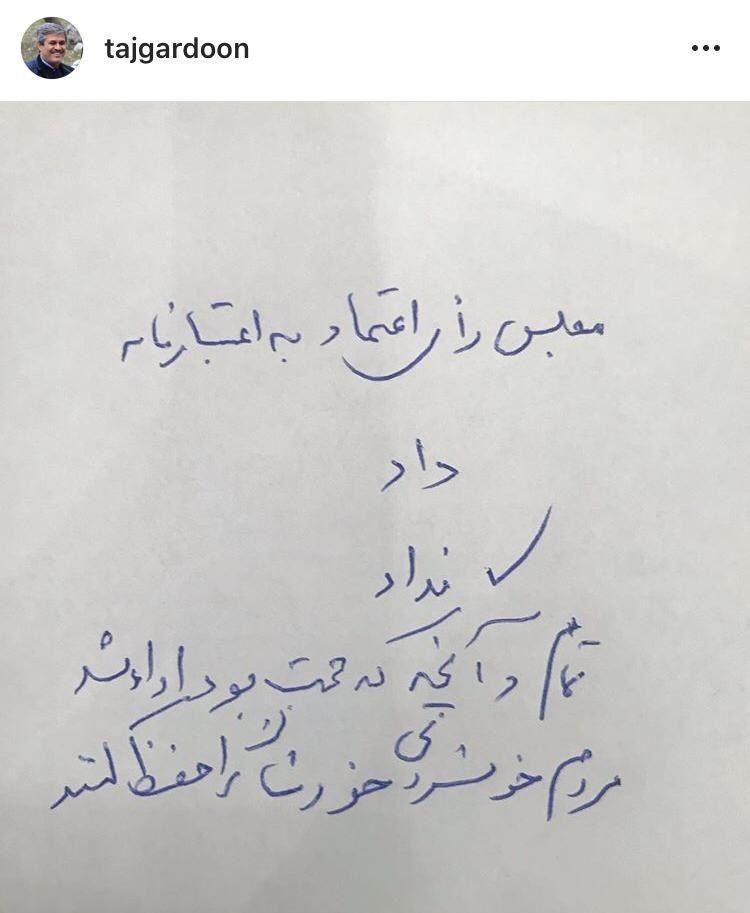 tajgardoon
مجلس رأی اعتماد به اعتبارنامه
داد
نداد ✓
تمام و آنچه که حجت بود اراءه شد
مردم خونسردی خودشان را حفظ کنند